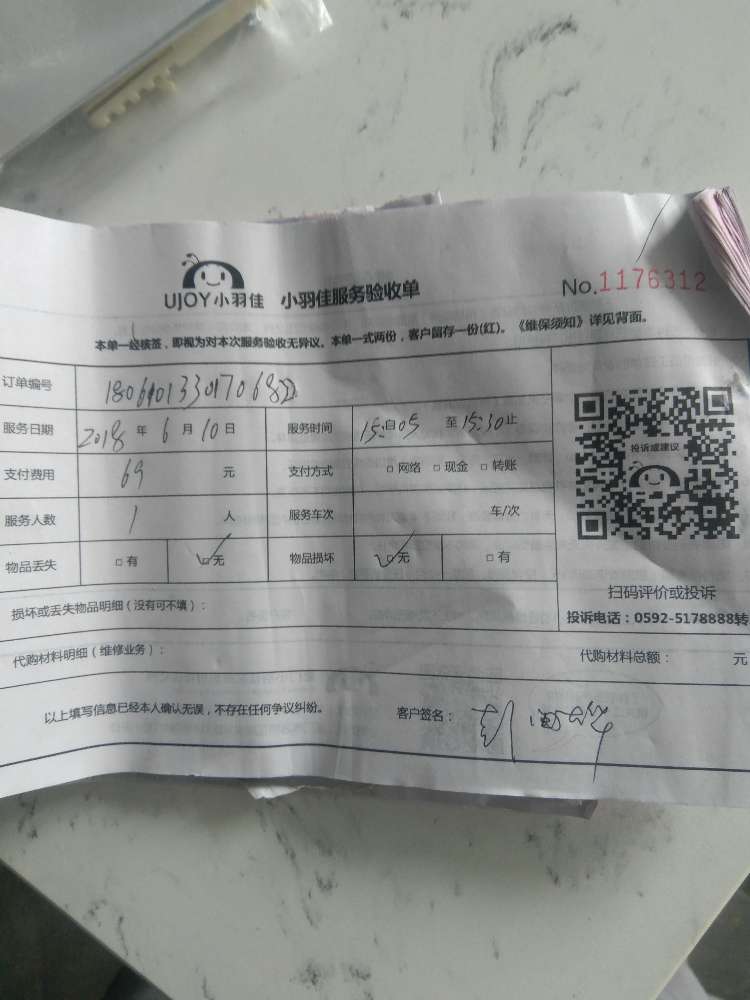 UJOY小羽佳 小羽佳服务验收单 No.1176312
本单一经核签，即视为对本次服务验收无异议。本单一式两份，客户留存一份(红)。《维保须知》详见背面。
订单编号
服务日期 2018 年 6 月 10 日 服务时间 15:自05 至 15:30止
支付费用 69 元 支付方式 □网络 □现金 □转账
服务人数 1 人 服务车次 车/次
物品丢失 □有 □无 物品损坏 □无 □有
投诉或建议
扫码评价或投诉
投诉电话：0592-5178888转
损坏或丢失物品明细（没有可不填）：
代购材料明细（维修业务）： 代购材料总额： 元
以上填写信息已经本人确认无误，不存在任何争议纠纷。 客户签名：